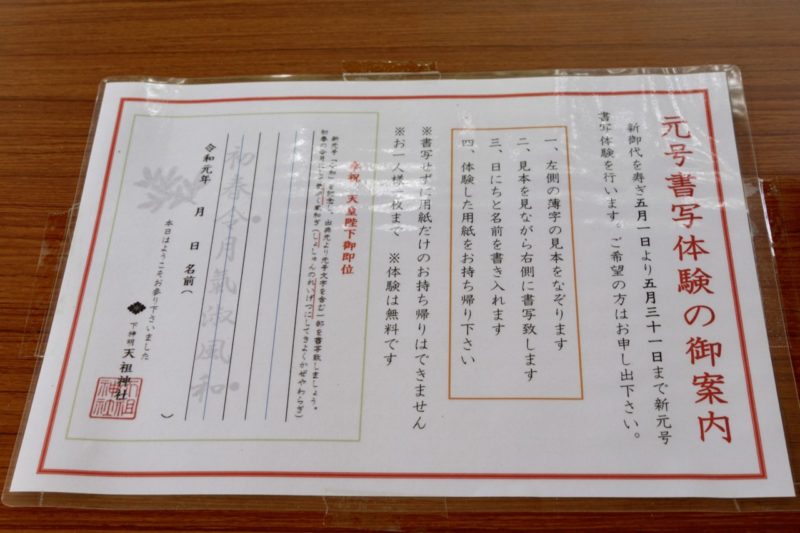 元号書写体験の御案内
新御代を寿ぎ五月一日より五月三十一日まで新元号
書写体験を行います。ご希望の方はお申し出下さい。
一、左側の薄字の見本をなぞります
二、見本を見ながら右側に書写致します
三、日にちと名前を書き入れます
四、体験した用紙をお持ち帰り下さい
※書写せずに用紙だけのお持ち帰りはできません
※お一人様一枚まで ※体験は無料です
奉祝 天皇陛下御即位
初春令月氣淑風和
令和元年 月 日 名前( )
本日はようこそお参り下さいました
下神明 天祖神社